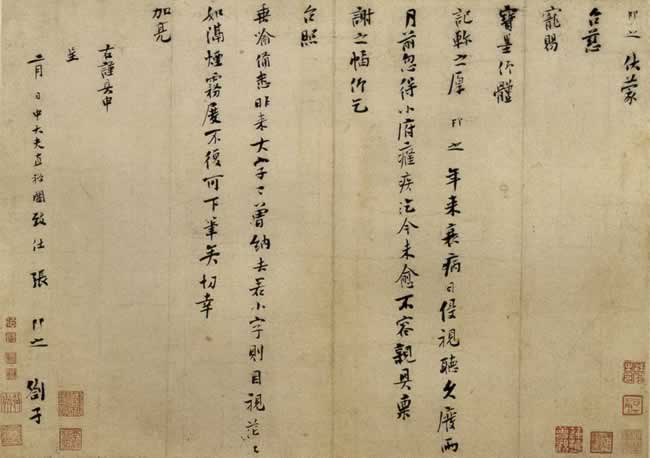 即之伏蒙
台慈
寵賜
寶墨仰體
記軫之厚即之年來衰病日侵視聽久廢兩
月前忽得小府癃疾迄今未愈不容親具稟
謝之幅仰乞
台照
垂諭備悉昨來大字曾納去若小字則目視茫〻
如滿煙霧廢不復可下筆矣切幸
加亮
右謹具申
呈
二月日中大夫直秘閣致仕張即之劄子